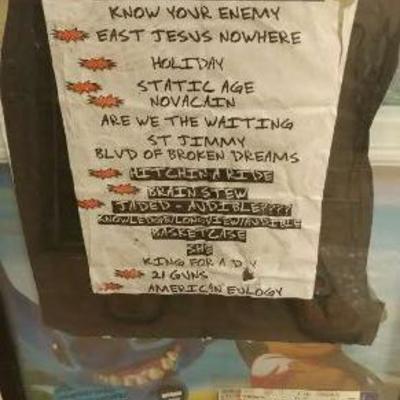 KNOW YOUR ENEMY
EAST JESUS NOWHERE
HOLIDAY
STATIC AGE
NOVACAIN
ARE WE THE WAITING
ST JIMMY
BLVD OF BROKEN DREAMS
HITCHIN A RIDE
BRAIN STEW
JADED - AUDIBLE????
KNOWLEDGE/LONGVIEW/AUDIBLE
BASKETCASE
SHE
KING FOR A D Y
21 GUNS
AMERICAN EULOGY